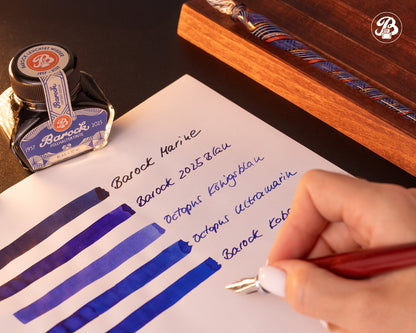 B
Barock
1957
2025
B
Barock Marine
Barock 2025 Blau
Octopus Königsblau
Octopus Ultramarin
Barock Kob